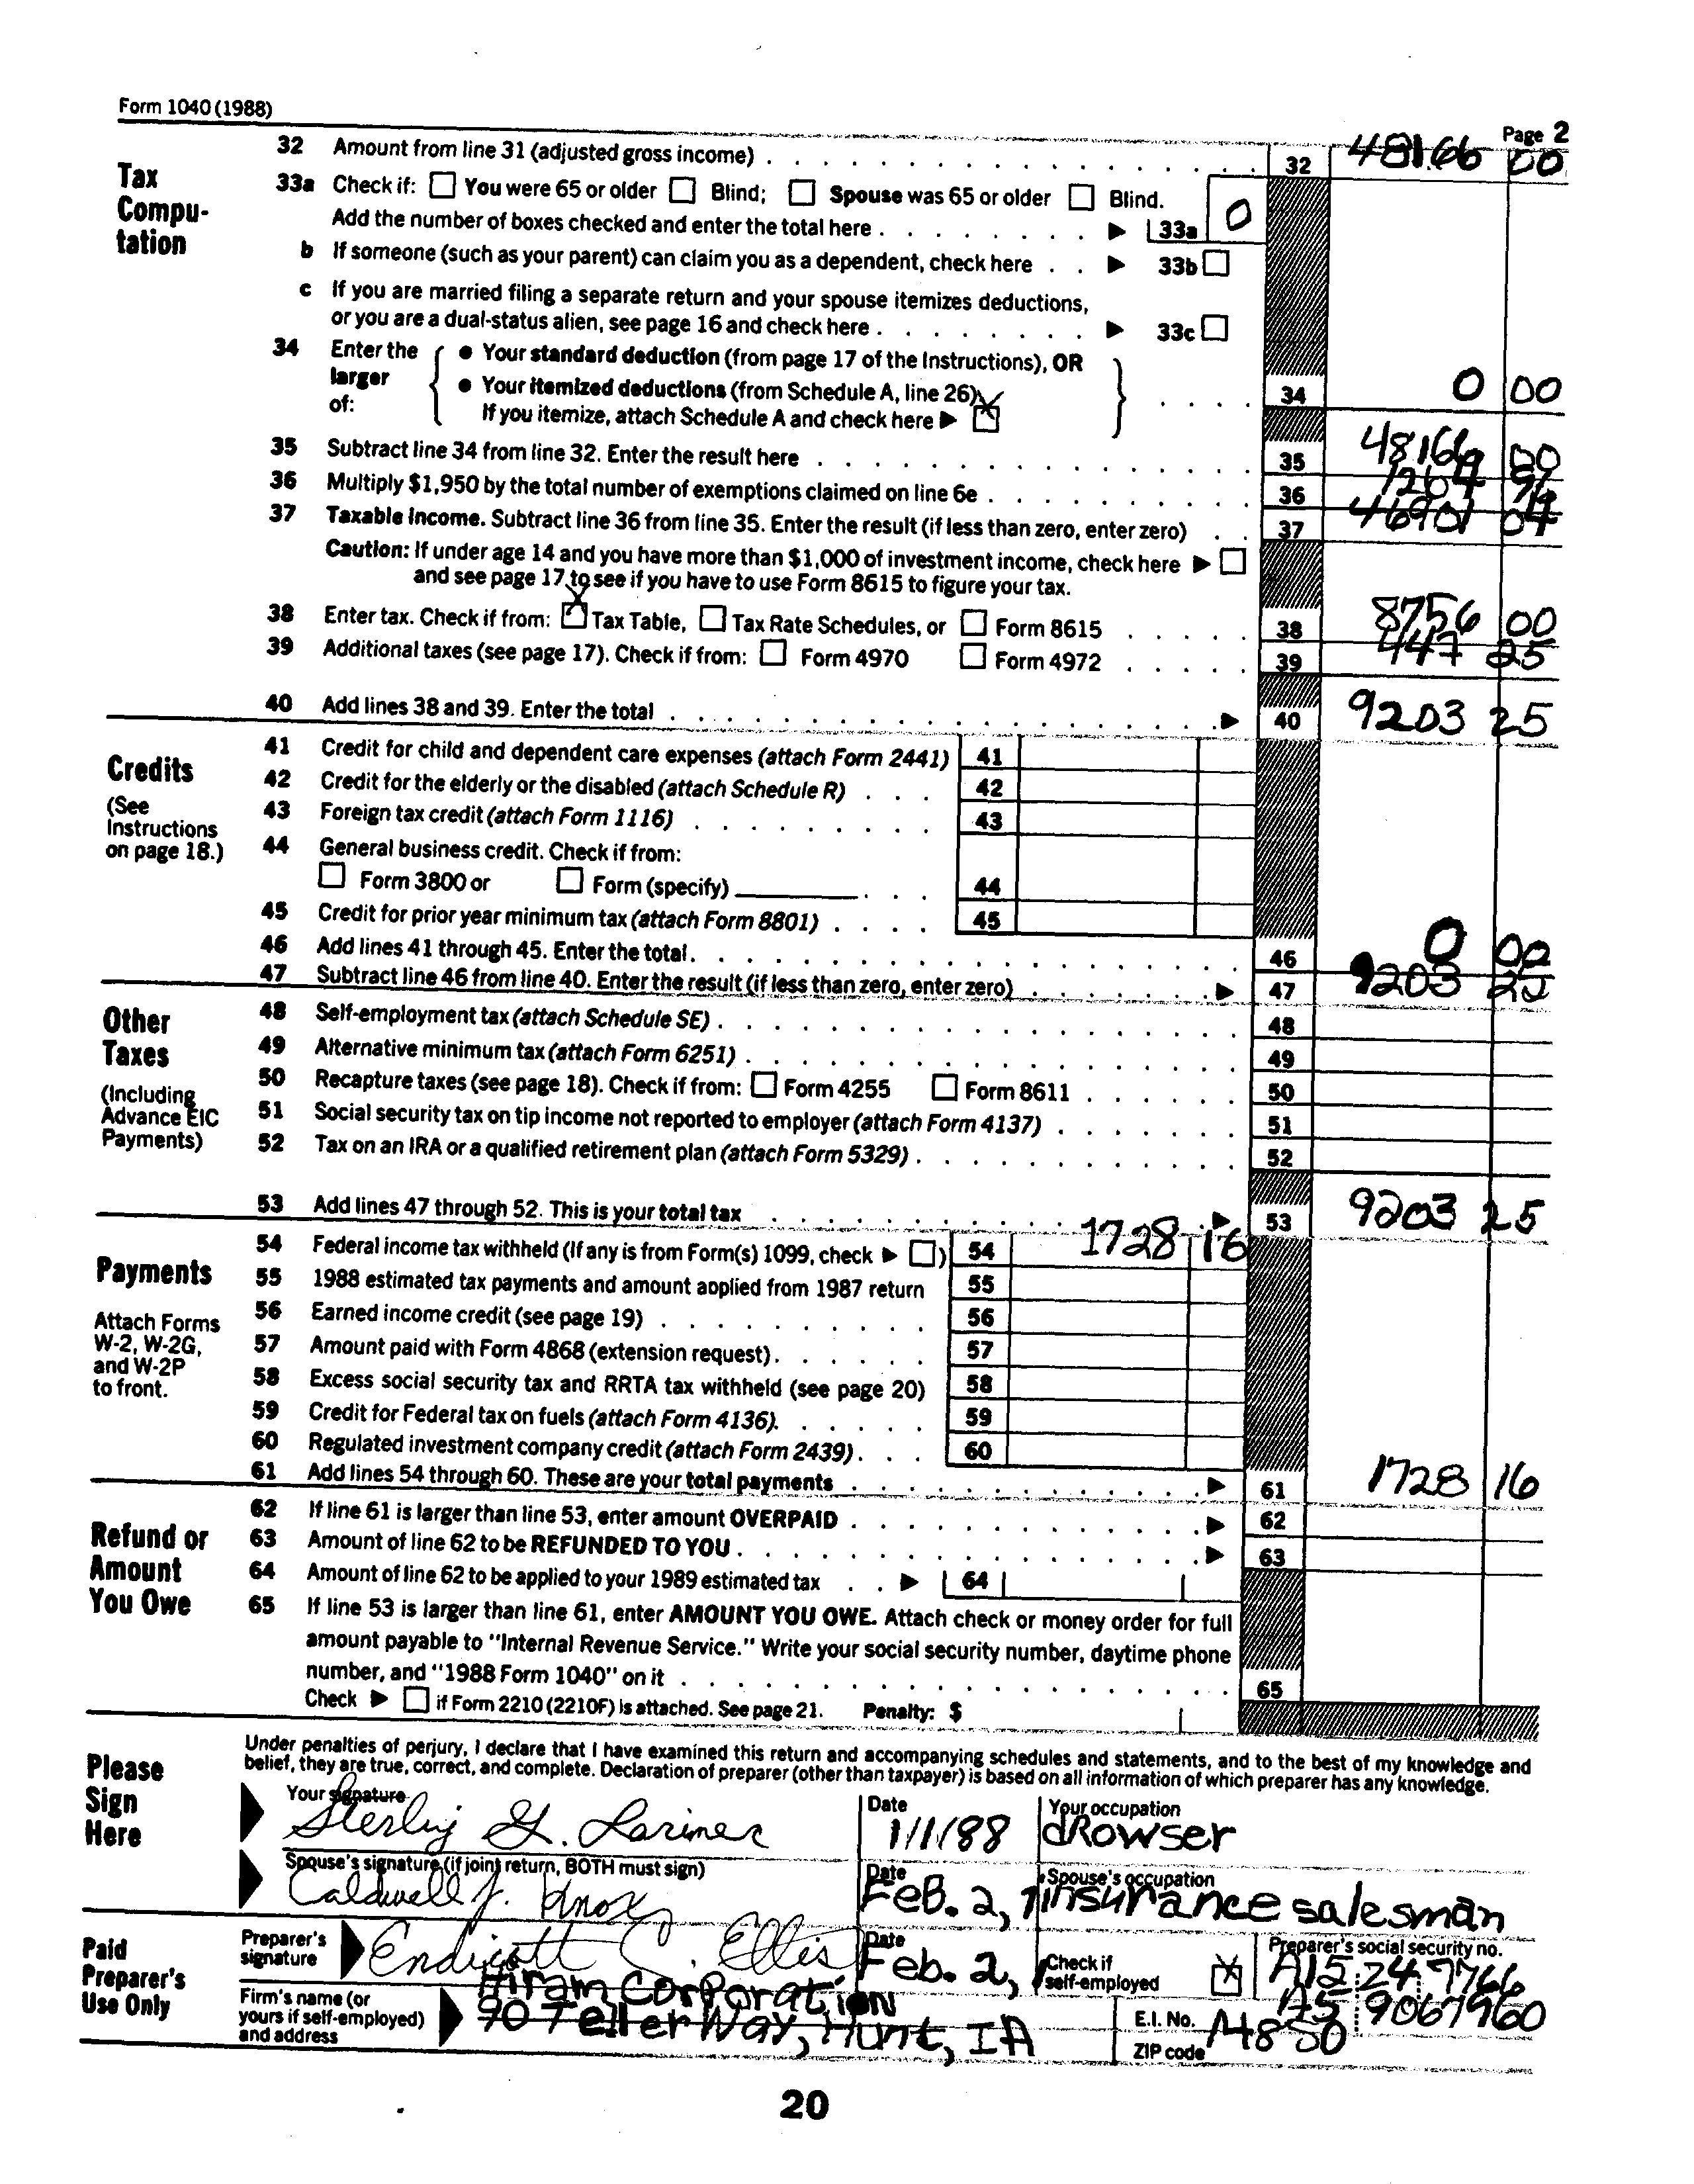 Form 1040 (1988)
Page 2
Tax Compu-tation
32 Amount from line 31 (adjusted gross income) . . . 32 48166 00
33a Check if: You were 65 or older Blind; Spouse was 65 or older Blind.
Add the number of boxes checked and enter the total here . . . 33a 0
b If someone (such as your parent) can claim you as a dependent, check here . . 33b
c If you are married filing a separate return and your spouse itemizes deductions,
or you are a dual-status alien, see page 16 and check here . . . 33c
34 Enter the larger of: { • Your standard deduction (from page 17 of the Instructions), OR
• Your itemized deductions (from Schedule A, line 26)
If you itemize, attach Schedule A and check here X } . . . . 34 0 00
35 Subtract line 34 from line 32. Enter the result here . . . 35 48166 00
36 Multiply $1,950 by the total number of exemptions claimed on line 6e . . . 36 1264
37 Taxable income. Subtract line 36 from line 35. Enter the result (if less than zero, enter zero) . . 37 46901 04
Caution: If under age 14 and you have more than $1,000 of investment income, check here
and see page 17 to see if you have to use Form 8615 to figure your tax.
38 Enter tax. Check if from: X Tax Table, Tax Rate Schedules, or Form 8615 . . . 38 8756 00
39 Additional taxes (see page 17). Check if from: Form 4970 Form 4972 . . . 39 447 25
40 Add lines 38 and 39. Enter the total . . . 40 9203 25
Credits
(See Instructions on page 18.)
41 Credit for child and dependent care expenses (attach Form 2441) 41
42 Credit for the elderly or the disabled (attach Schedule R) . . . 42
43 Foreign tax credit (attach Form 1116) . . . 43
44 General business credit. Check if from:
Form 3800 or Form (specify) . . . 44
45 Credit for prior year minimum tax (attach Form 8801) . . . . 45
46 Add lines 41 through 45. Enter the total . . . 46 0 00
47 Subtract line 46 from line 40. Enter the result (if less than zero, enter zero) . . . 47 9203
Other Taxes
(Including Advance EIC Payments)
48 Self-employment tax (attach Schedule SE) . . . 48
49 Alternative minimum tax (attach Form 6251) . . . 49
50 Recapture taxes (see page 18). Check if from: Form 4255 Form 8611 . . . 50
51 Social security tax on tip income not reported to employer (attach Form 4137) . . . 51
52 Tax on an IRA or a qualified retirement plan (attach Form 5329) . . . 52
53 Add lines 47 through 52. This is your total tax . . . 53 9203 25
Payments
Attach Forms W-2, W-2G, and W-2P to front.
54 Federal income tax withheld (If any is from Form(s) 1099, check ) 54 1728 16
55 1988 estimated tax payments and amount applied from 1987 return 55
56 Earned income credit (see page 19) . . . 56
57 Amount paid with Form 4868 (extension request) . . . 57
58 Excess social security tax and RRTA tax withheld (see page 20) 58
59 Credit for Federal tax on fuels (attach Form 4136) . . . 59
60 Regulated investment company credit (attach Form 2439) . . . 60
61 Add lines 54 through 60. These are your total payments . . . 61 1728 16
Refund or Amount You Owe
62 If line 61 is larger than line 53, enter amount OVERPAID . . . 62
63 Amount of line 62 to be REFUNDED TO YOU . . . 63
64 Amount of line 62 to be applied to your 1989 estimated tax . . 64
65 If line 53 is larger than line 61, enter AMOUNT YOU OWE. Attach check or money order for full
amount payable to "Internal Revenue Service." Write your social security number, daytime phone
number, and "1988 Form 1040" on it . . . 65
Check if Form 2210 (2210F) is attached. See page 21. Penalty: $
Please Sign Here
Under penalties of perjury, I declare that I have examined this return and accompanying schedules and statements, and to the best of my knowledge and
belief, they are true, correct, and complete. Declaration of preparer (other than taxpayer) is based on all information of which preparer has any knowledge.
Your signature Date Your occupation
Sterling G. Larimer 1/1/88 dRowser
Spouse's signature (if joint return, BOTH must sign) Date Spouse's occupation
Caldwell J. Knox Feb. 2, insurance salesman
Paid Preparer's Use Only
Preparer's signature Endicott C. Ellis Date Feb. 2, Check if self-employed X Preparer's social security no. A15 24 7766
Firm's name (or yours if self-employed) and address Hiram Corporation E.I. No. A5 9067960
90 Teller Way, Hunt, IA ZIP code
20